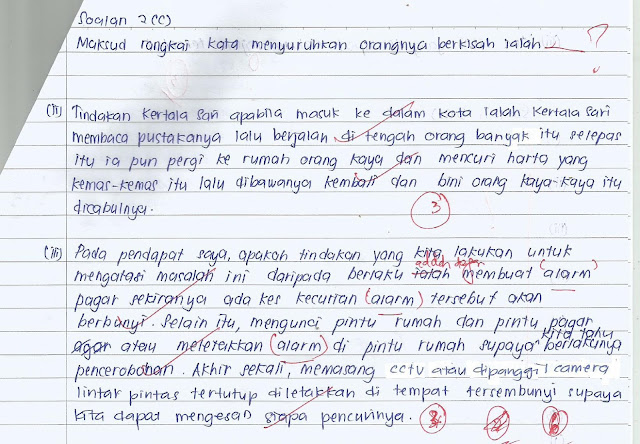 Soalan 2 (c)
Maksud rangkai kata menyuruhkan orangnya berkisah ialah ___ ?
(ii) Tindakan Kertala Sari apabila masuk ke dalam kota ialah Kertala Sari
membaca pustakanya lalu berjalan di tengah orang banyak itu selepas
itu ia pun pergi ke rumah orang kaya dan mencuri harta yang
kemas-kemas itu lalu dibawanya kembali dan bini orang kaya-kaya itu
dicabulnya.
3
(iii) Pada pendapat saya, apakah tindakan yang kita lakukan untuk
adalah dengan
mengatasi masalah ini daripada berlaku ialah membuat (alarm)
pagar sekiranya ada kes kecurian (alarm) tersebut akan
berbunyi. Selain itu, mengunci pintu rumah dan pintu pagar
kita tahu
agar atau meletakkan (alarm) di pintu rumah supaya berlakunya
pencerobohan. Akhir sekali, memasang cctv atau dipanggil camera
lintar pintas tertutup diletakkan di tempat tersembunyi supaya
kita dapat mengesan siapa pencurinya.